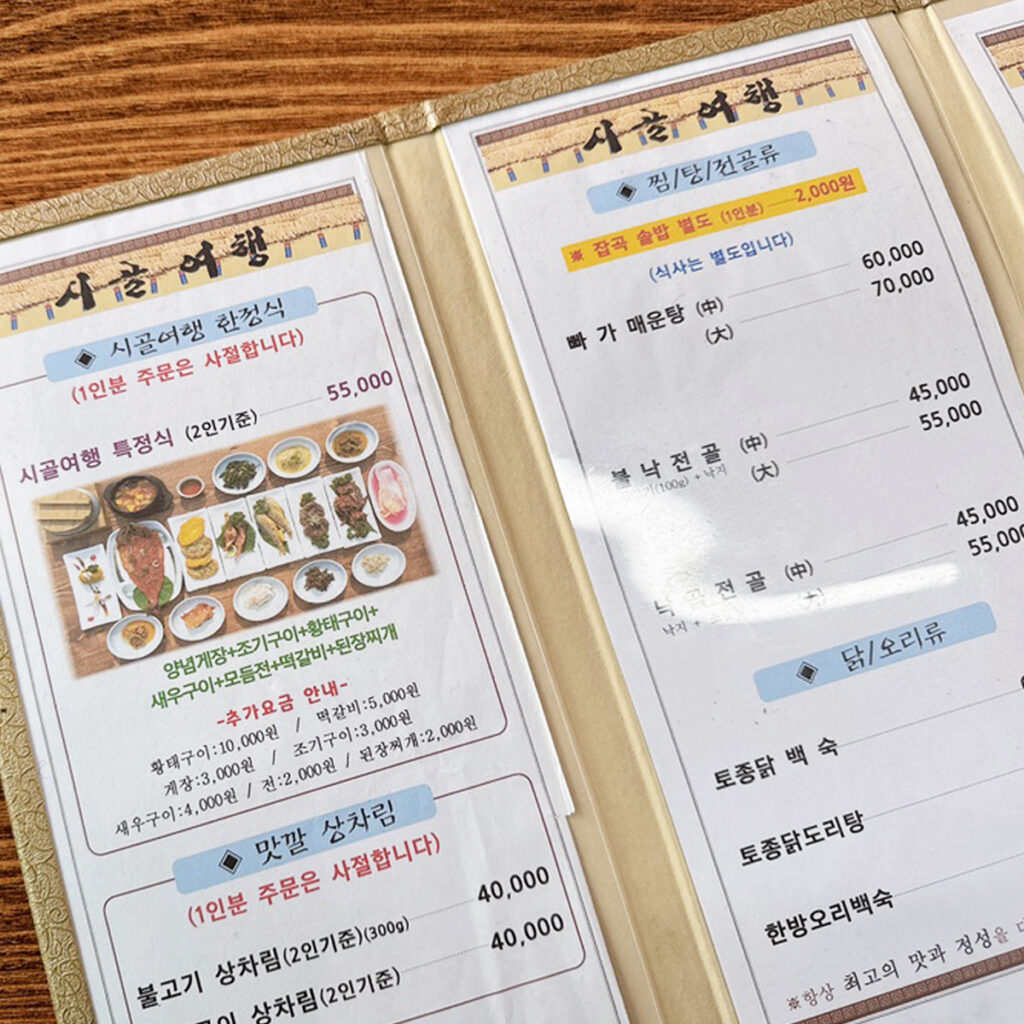 시골여행
◈ 시골여행 한정식
(1인분 주문은 사절합니다)
시골여행 특정식 (2인기준) 55,000
양념게장+조기구이+황태구이+
새우구이+모듬전+떡갈비+된장찌개
-추가요금 안내-
황태구이:10,000원 / 떡갈비:5,000원
게장:3,000원 / 조기구이:3,000원
새우구이:4,000원 / 전:2,000원 / 된장찌개:2,000원
◈ 맛깔 상차림
(1인분 주문은 사절합니다)
불고기 상차림(2인기준)(300g) 40,000
상차림(2인기준) 40,000
시골여행
◈ 찜/탕/전골류
※ 잡곡 솥밥 별도 (1인분) 2,000원
(식사는 별도입니다)
빠 가 매운탕 (中) 60,000
(大) 70,000
불 낙 전 골 (中) 45,000
(100g) + 낙지
(大) 55,000
전 골 (中) 45,000
낙지 +
55,000
◈ 닭/오리류
토종닭 백 숙
토종닭도리탕
한방오리백숙
※항상 최고의 맛과 정성을